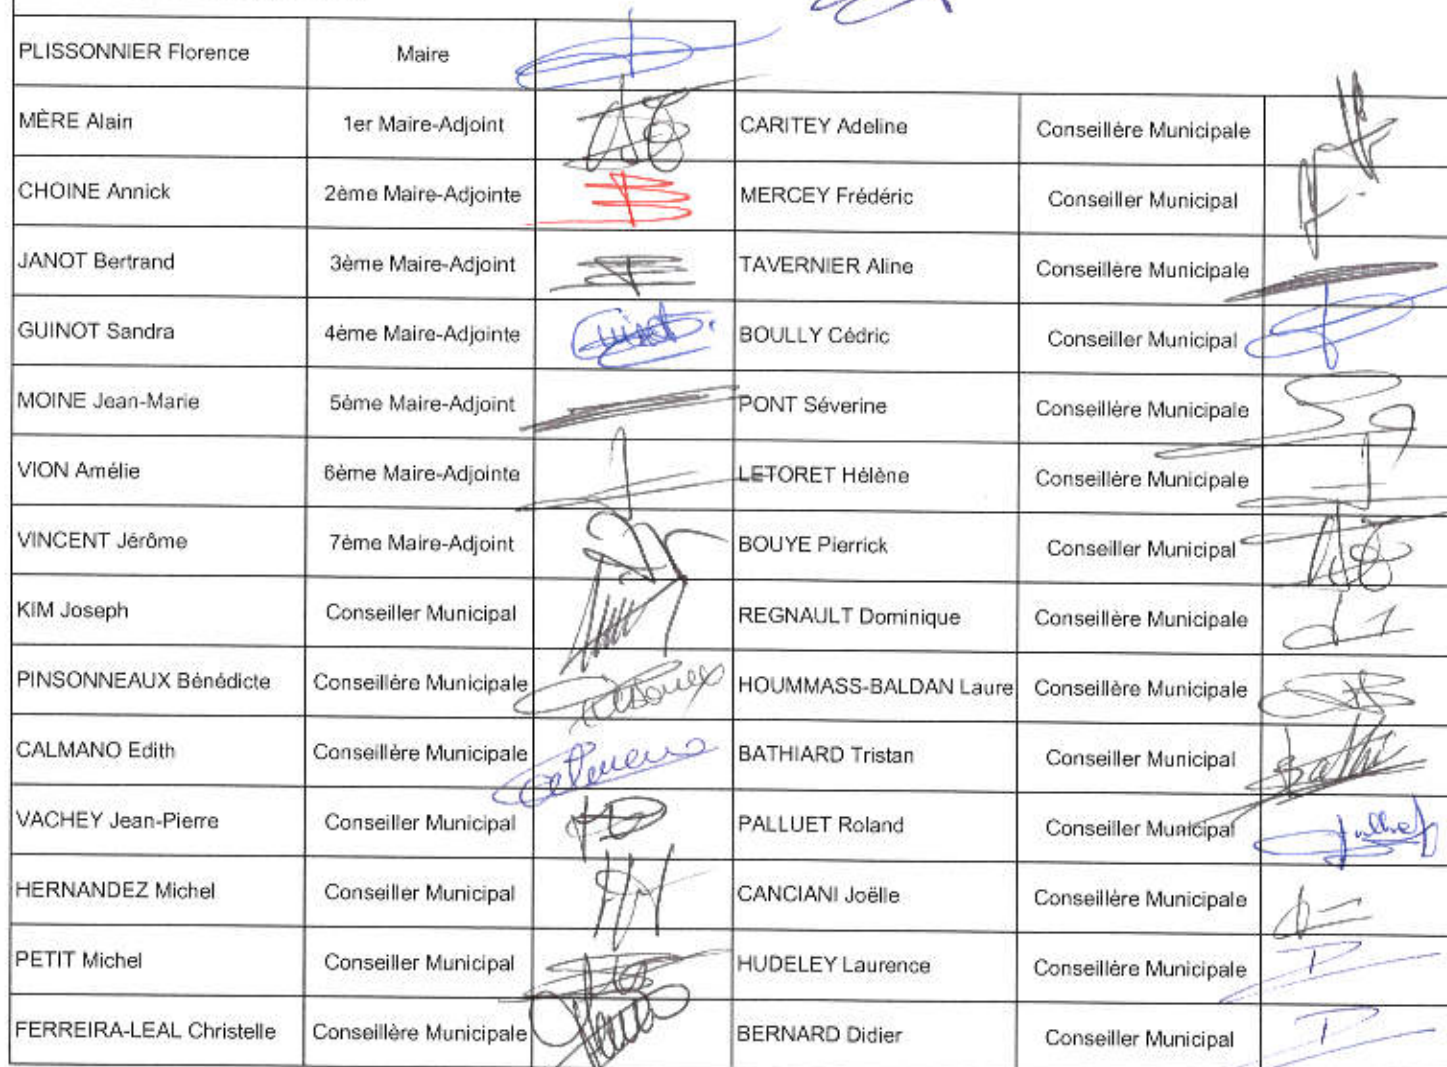 PLISSONNIER Florence Maire
MÈRE Alain 1er Maire-Adjoint
CHOINE Annick 2ème Maire-Adjointe
JANOT Bertrand 3ème Maire-Adjoint
GUINOT Sandra 4ème Maire-Adjointe
MOINE Jean-Marie 5ème Maire-Adjoint
VION Amélie 6ème Maire-Adjointe
VINCENT Jérôme 7ème Maire-Adjoint
KIM Joseph Conseiller Municipal
PINSONNEAUX Bénédicte Conseillère Municipale
CALMANO Edith Conseillère Municipale
VACHEY Jean-Pierre Conseiller Municipal
HERNANDEZ Michel Conseiller Municipal
PETIT Michel Conseiller Municipal
FERREIRA-LEAL Christelle Conseillère Municipale
CARITEY Adeline Conseillère Municipale
MERCEY Frédéric Conseiller Municipal
TAVERNIER Aline Conseillère Municipale
BOULLY Cédric Conseiller Municipal
PONT Séverine Conseillère Municipale
LETORET Hélène Conseillère Municipale
BOUYE Pierrick Conseiller Municipal
REGNAULT Dominique Conseillère Municipale
HOUMMASS-BALDAN Laure Conseillère Municipale
BATHIARD Tristan Conseiller Municipal
PALLUET Roland Conseiller Municipal
CANCIANI Joëlle Conseillère Municipale
HUDELEY Laurence Conseillère Municipale
BERNARD Didier Conseiller Municipal